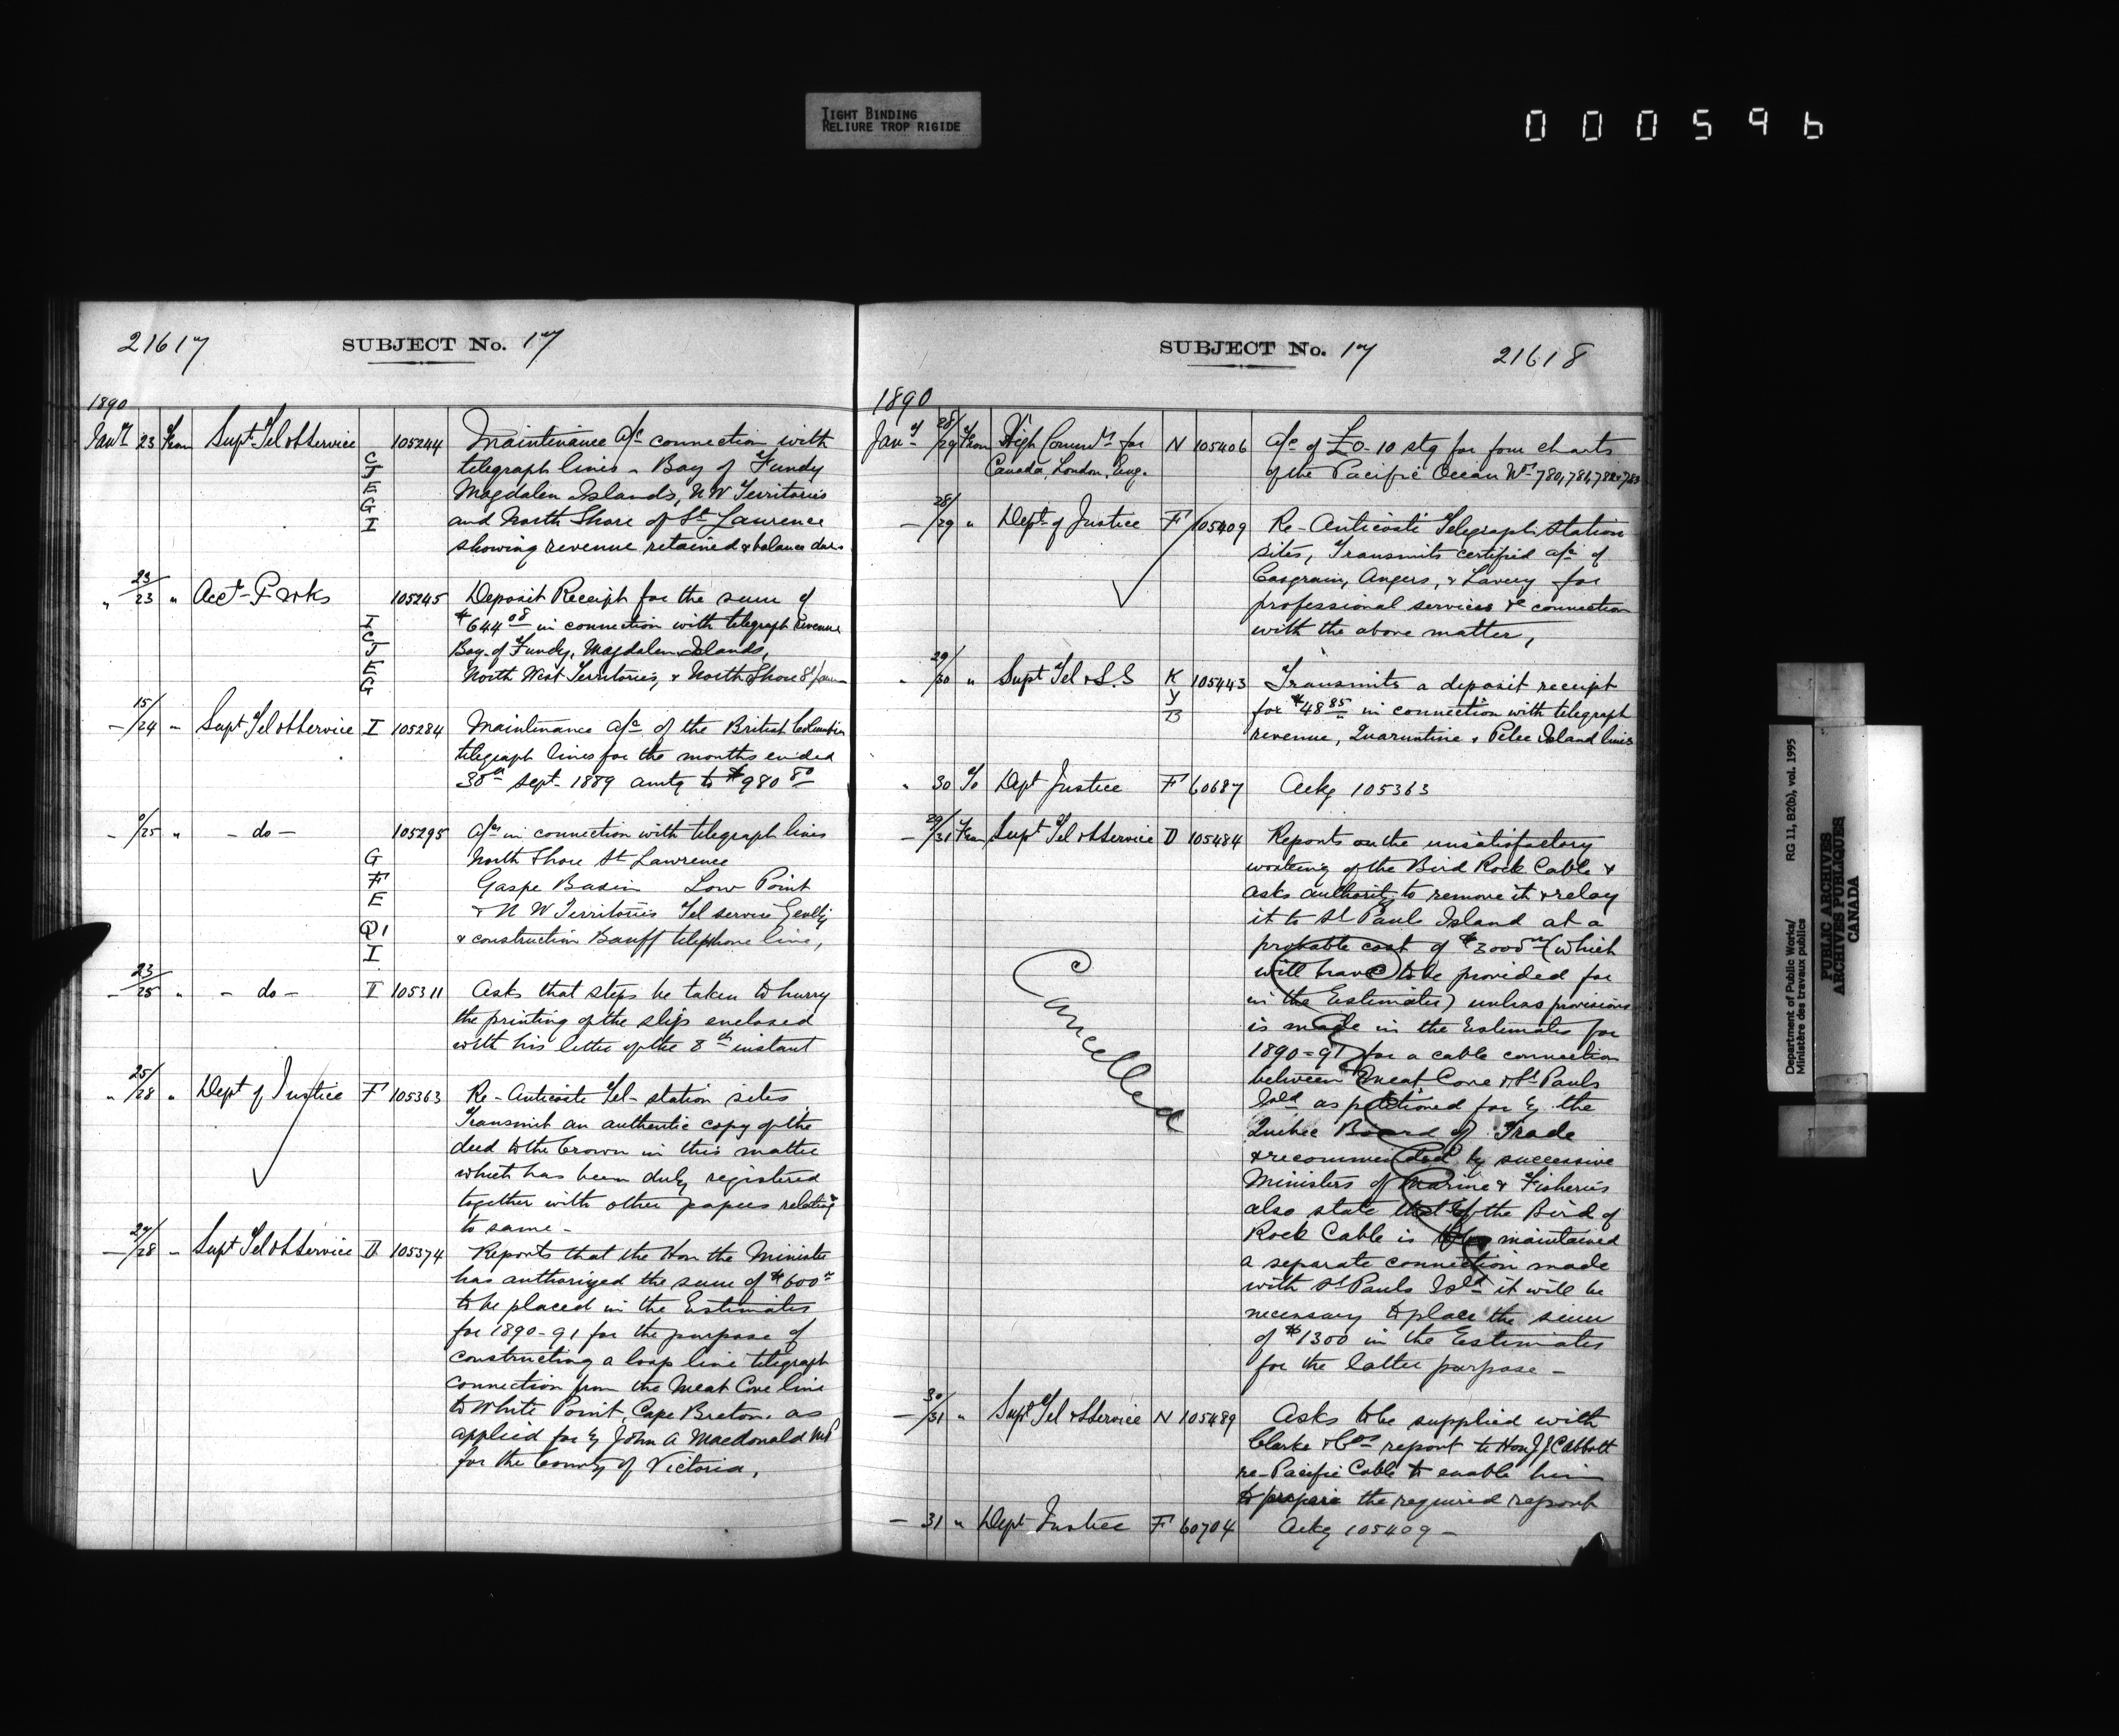 TIGHT BINDING
RELIURE TROP RIGIDE
000596
21617 SUBJECT No. 17
1890
Jany 23 From Supt Tel & S Service 105244 Maintenance a/c connection with
C telegraph lines - Bay of Fundy
J
E Magdalen Islands, N W Territories
G
I and North Shore of St Laurence
showing revenue retained & balance due
" 23/23 " Acct P Wks 105245 Deposit Receipt for the sum of
I $644 08 in connection with telegraph revenue
C
J Bay of Fundy, Magdalen Islands,
E North West Territories, & North Shore St Laurence
G
- 15/24 " Supt Tel & S Service I 105284 Maintenance a/c of the British Columbia
telegraph lines for the months ended
30th Sept. 1889 amtg to $980 80
- /25 " - do - 105295 a/cs in connection with telegraph lines
G North Shore St Lawrence
F Gaspe Basin Low Point
E & N W Territories Tel service Genlly
Q1 & construction Banff telephone line,
I
- 23/25 " - do - I 105311 Asks that steps be taken to hurry
the printing of the slips enclosed
with his letter of the 8th instant
" 25/28 " Dept of Justice F 105363 Re- Anticosti Tel- station sites
Transmit an authentic copy of the
deed to the Crown in this matter
which has been duly registered
together with other papers relating
to same -
- 27/28 " Supt Tel & S Service D 105374 Reports that the Hon the Minister
has authorized the sum of $600
to be placed in the Estimates
for 1890-91 for the purpose of
constructing a loop line telegraph
connection from the Meat Cove line
to White Point, Cape Breton, as
applied for by John A Macdonald MP
for the County of Victoria,
SUBJECT No. 17 21618
1890
Jany 28/29 From High Commr for N 105406 a/c of £0-10 stg for four charts
Canada, London, Eng. of the Pacific Ocean Nos 780, 781, 782 & 783
- 28/29 " Dept of Justice F 105409 Re- Anticosti Telegraph Station
sites, Transmits certified a/c of
Casgrain, Angers, & Lavery for
professional services &c connection
with the above matter,
" 29/30 " Supt Tel & S.S K 105443 Transmits a deposit receipt
Y for $48 85 in connection with telegraph
B revenue, Quarantine & Pelee Island lines
" 30 To Dept Justice F 60687 Ackg 105363
- 29/31 From Supt Tel & S Service D 105484 Reports on the unsatisfactory
working of the Bird Rock Cable &
asks authority to remove it & relay
it to St Paul Island at a
probable cost of $3000 (which
will have to be provided for
in the Estimates) unless provisions
is made in the Estimates for
1890=91 for a cable connection
between Meat Cove & St Pauls
Isld as petitioned for by the
Quebec Board of Trade
& recommended by successive
Ministers of Marine & Fisheries
also state that if the Bird of
Rock Cable is maintained
a separate connection made
with St Pauls Isld it will be
necessary to place the sum
of $1300 in the Estimates
for the latter purpose -
Cancelled
- 30/31 " Supt Tel & S Service N 105489 Asks to be supplied with
Clarke & Cos report to Hon J J C Abbott
re- Pacific Cable to enable him
to prepare the required report
- 31 " Dept Justice F 60704 Ackg 105409 -
Department of Public Works/ RG 11, B2(b), vol. 1995
Ministère des travaux publics
PUBLIC ARCHIVES
ARCHIVES PUBLIQUES
CANADA